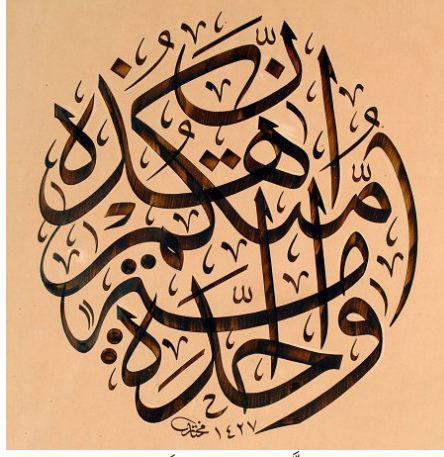 إنّ هذه أمّتكم أمّة واحدة
مختار ١٤٢٧